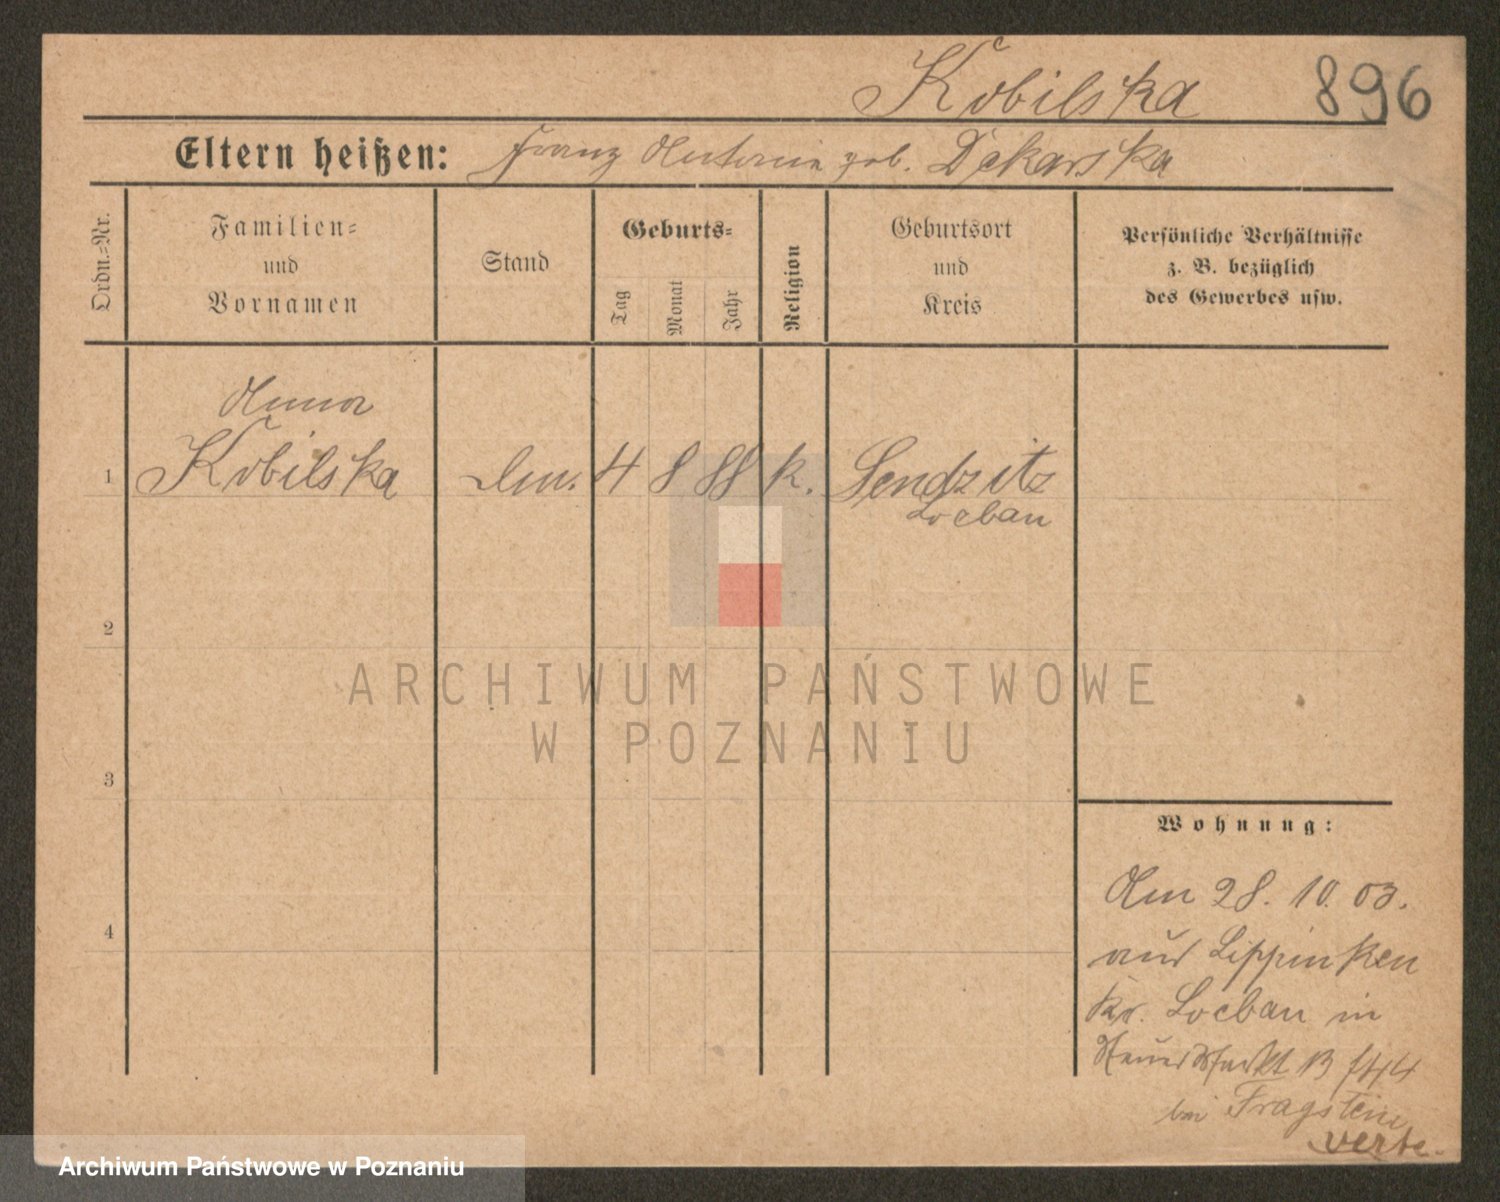 Kobilska 896
Eltern heißen: Franz Antonie geb. Dekarska
Ordn.-Nr.
Familien-
und
Vornamen
Stand
Geburts-
Tag
Monat
Jahr
Religion
Geburtsort
und
Kreis
Persönliche Verhältnisse
z. B. bezüglich
des Gewerbes usw.
Anna
1 Kobilska 4 8 88 k. Sendzitz
Loebau
2
3
4
Wohnung:
Am 28. 10. 03.
aus Lippinken
Kr. Loebau in
bei Fragstein
verte.
ARCHIWUM PAŃSTWOWE
W POZNANIU
Archiwum Państwowe w Poznaniu